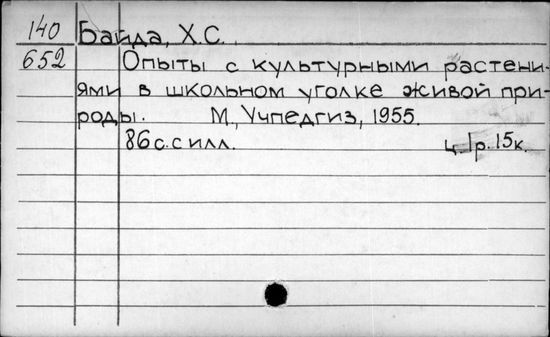 140 Байда, Х.С.
652 Опыты с культурными растени-
ями в школьном уголке живой при-
роды. М., Учпедгиз, 1955.
86 с. с илл. ц. 1р. 15к.